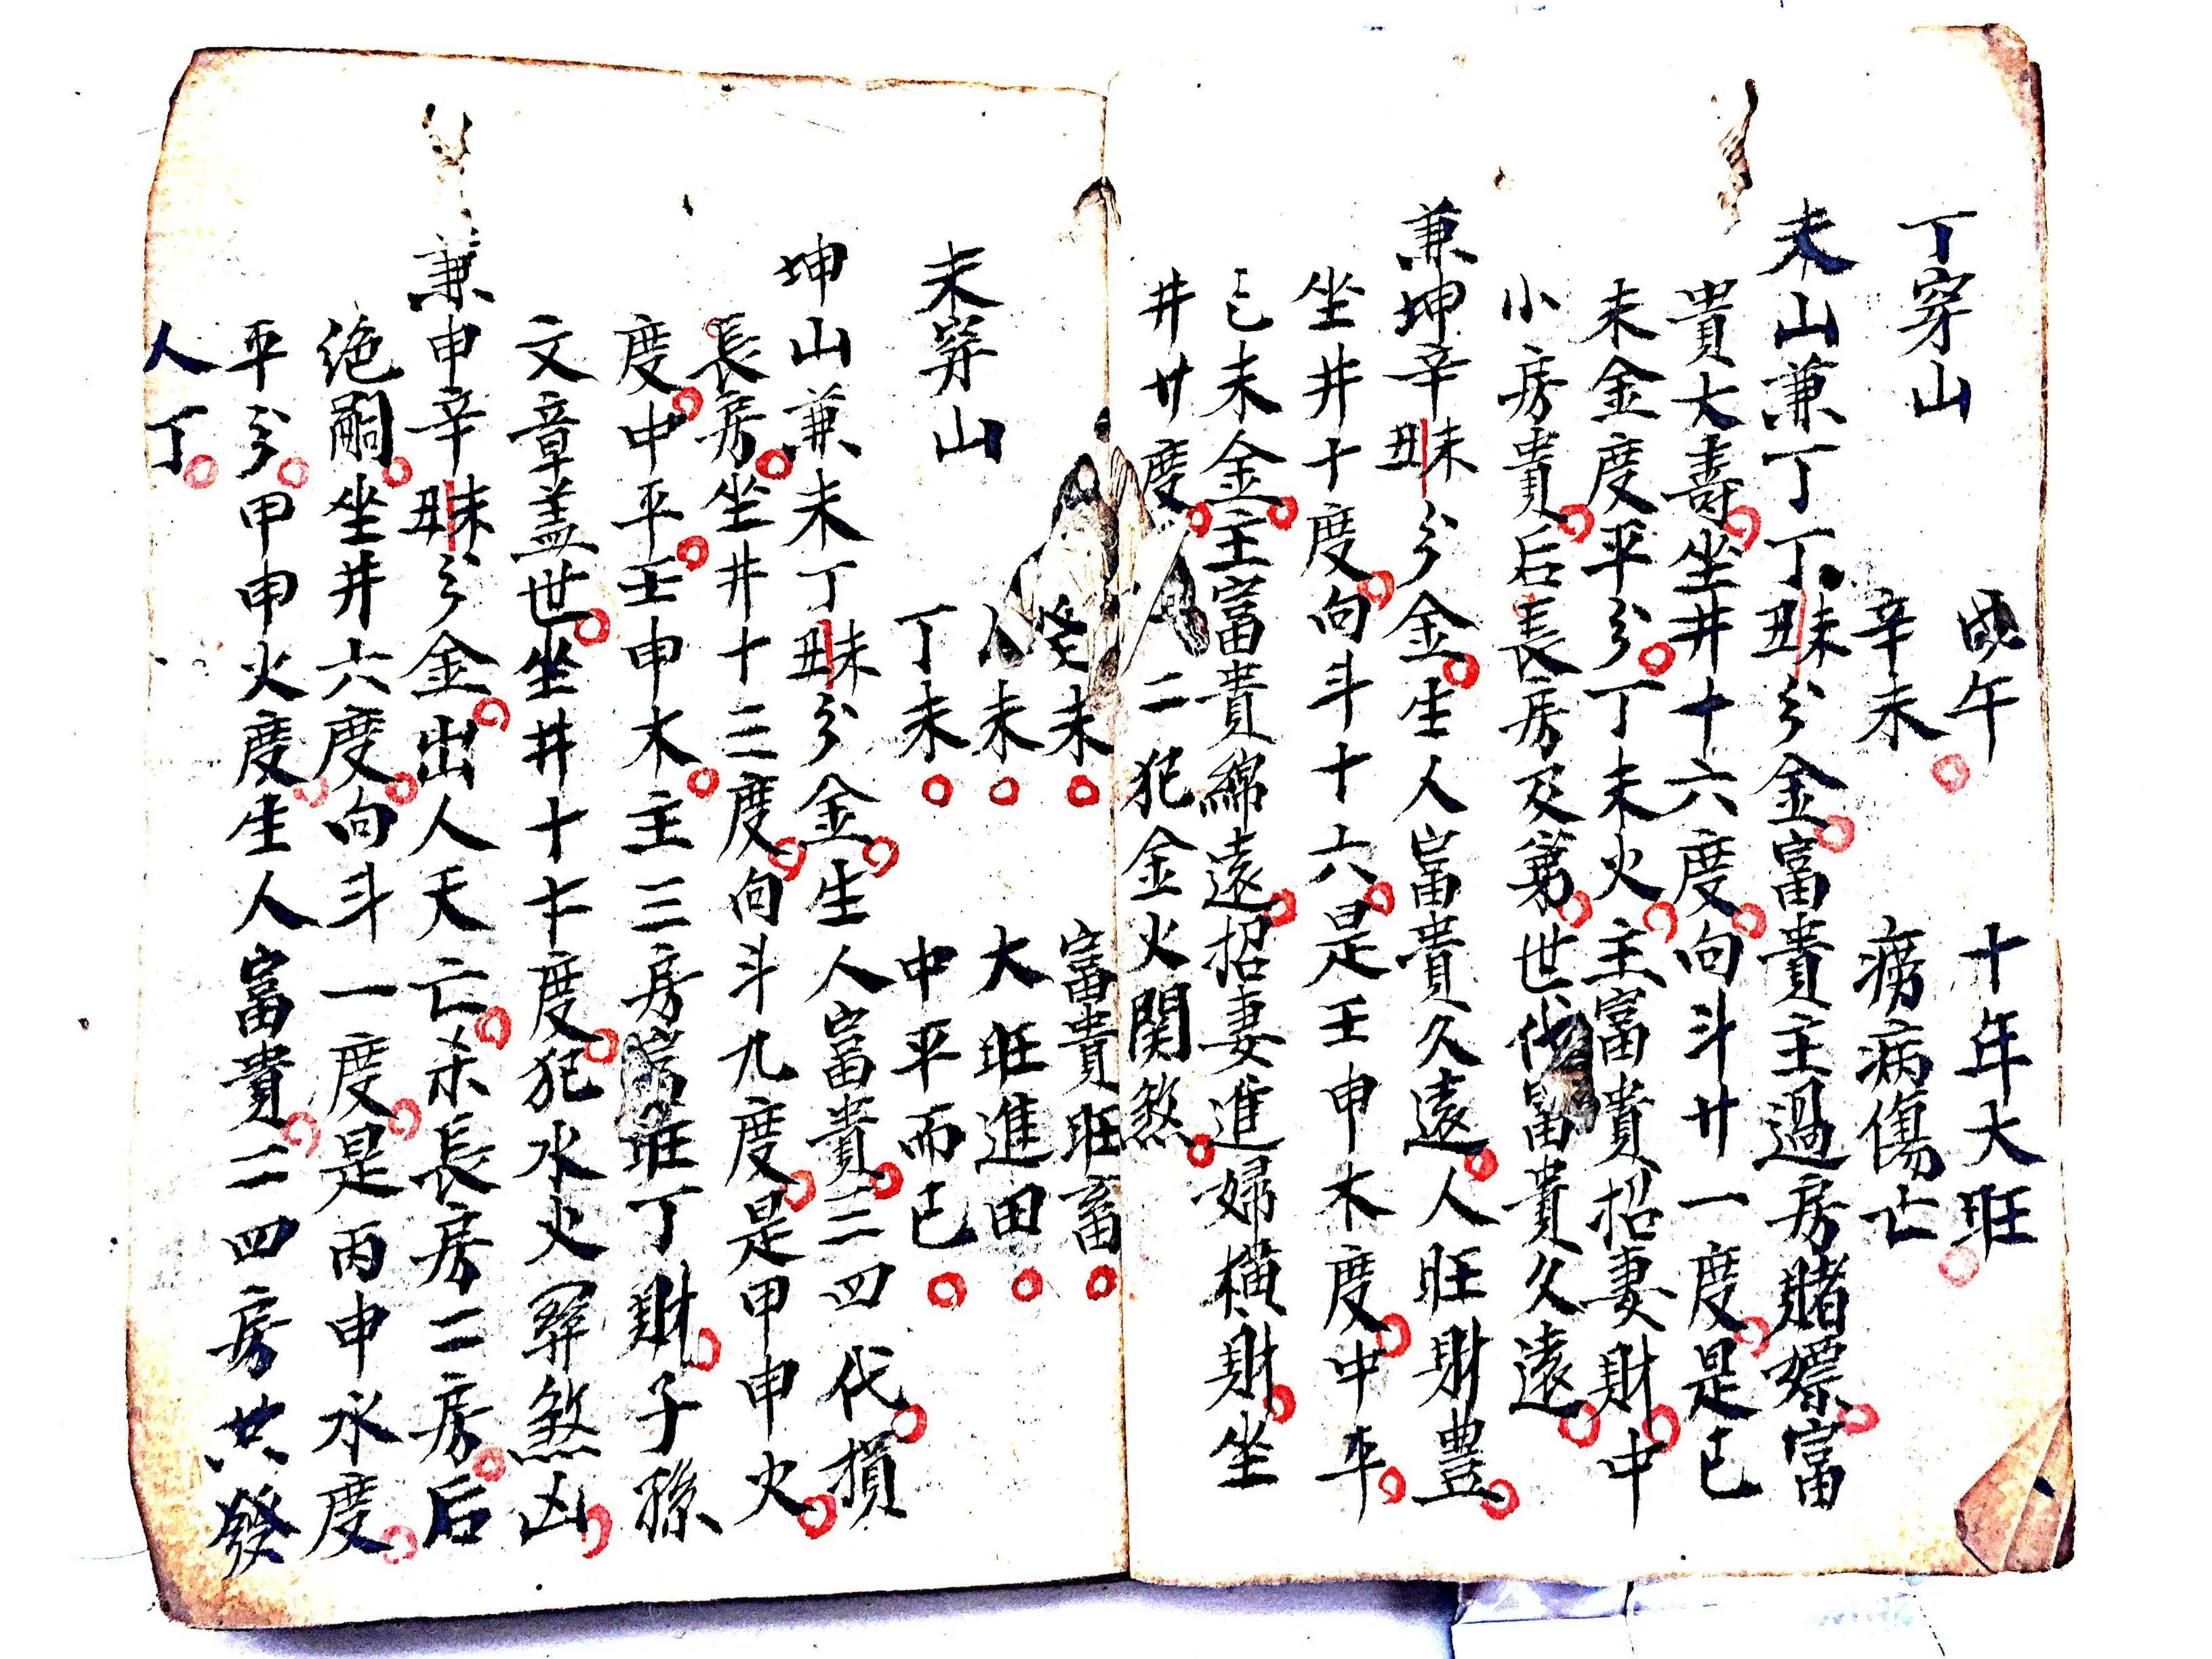 丁穿山 午 十年大旺
辛未 癆病傷亡
未山兼丁丁丑丁未分金富貴主過房賭嫖富
貴大壽坐井十六度向斗廿一度是已
未金度平分丁未火主富貴招妻財中
小房貴后長房及第世代富貴久遠
兼坤辛丑辛未分金生人富貴久遠人旺財豊
坐井十度向斗十六是壬申木度中平
已未金主富貴綿遠招妻進婦横財坐
井廿度 二犯金火関煞
癸未 富貴旺畜
未 大旺進田
未穿山 丁未 中平而已
坤山兼未丁丑丁未分金生人富貴三四代損
長房坐井十三度向斗九度是甲申火
度中平壬申木主三房 旺丁財子孫
文章盖世坐井十 度犯水火 煞凶
兼申辛丑辛未分金出人夭亡杀長房二房后
绝嗣坐井六度向斗一度是丙申水度
平分甲申火度生人富貴二四房共發
人丁